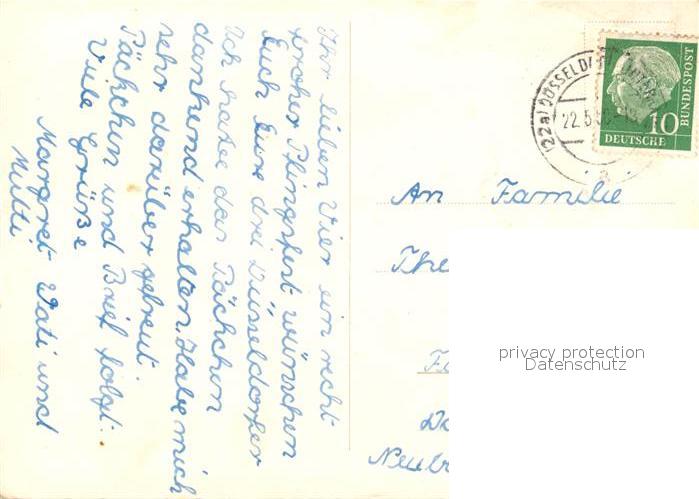 Ihr lieben Vier ein recht
frohes Pfingstfest wünschen
Euch Eure drei Düsseldorfer
Ich habe das Päckchen
dankend erhalten, Habe mich
sehr darüber gefreut.
Päckchen und Brief folgt.
Viele Grüße
Margret Vati und
Mutti
(22a) DÜSSELDORF
22.5.
10
DEUTSCHE
BUNDESPOST
An Familie
The
privacy protection
Datenschutz
Neub